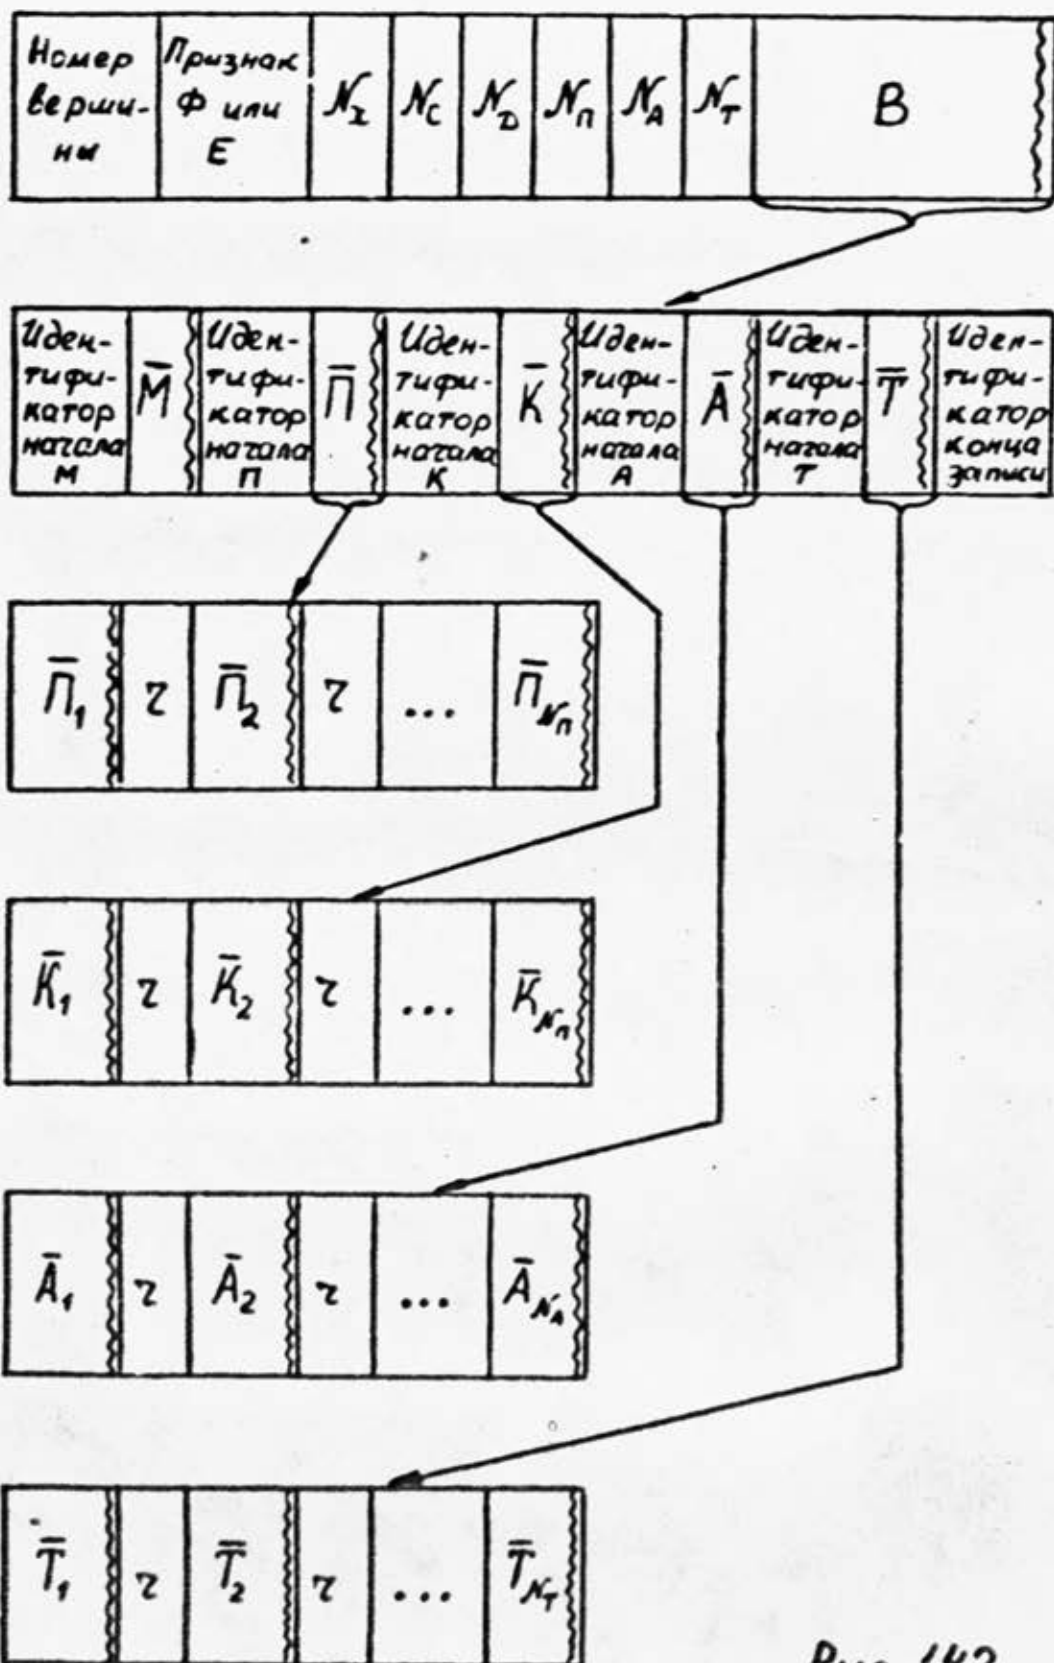 Номер верши-ны Признак Ф или Е N_I N_C N_D N_П N_A N_T В
Иден-тифи-катор начала М M̄ Иден-тифи-катор начала П П̄ Иден-тифи-катор начала К K̄ Иден-тифи-катор начала А Ā Иден-тифи-катор начала Т T̄ Иден-тифи-катор конца записи
П̄₁ τ П̄₂ τ ... П̄_Nп
K̄₁ τ K̄₂ τ ... K̄_Nп
Ā₁ τ Ā₂ τ ... Ā_NA
T̄₁ τ T̄₂ τ ... T̄_NT
Рис. 142